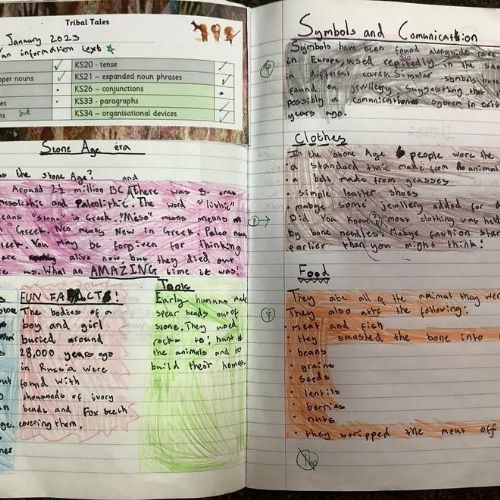 Tribal Tales
January 2023
an information text
KS20 - tense
per nouns
KS21 – expanded noun phrases
KS26 – conjunctions
KS33 - paragraphs
but
KS34 – organisational devices
Stone Age era
the Stone Age? and
Around 2½ million BC. There was
mesolithic and Paleolithic. The word "lithic"
eans "stone" in Greek. "Miso" means
Greek. Neo means New in Greek. Paleo
Greek. You may be forgiven for thinking
are alive now but they died out
us. What an AMAZING time it was!
FUN FACTS!
The bodies of a
boy and girl
buried around
28,000 years ago
in Russia were
found with
thousands of ivory
beads and Fox teeth
covering them.
Topic
Early humans made
spear heads out of
stone. They used
rocks to hunt
the animals and to
build their homes.
Symbols and Comunicattion
Symbols have been found alongside
in Europe, used repeatedly in the
in different caves. Similar symbols
found on jewellery suggesting that
possibly a comunicationn system in
years ago.
Clothes
In the Stone Age people wore the
a standard that made from animal
but made from carcasses
simple leather shoes
maybe some jewellery added for
Did you Know? most clothing was
by bone needles. Maybe fashion
earlier than you might think!
Food
They ate all of the animal they
They also ate the following:
meat and fish
they smashed the bone into
beans
grains
seeds
lentils
berries
nuts
they stripped the meat off